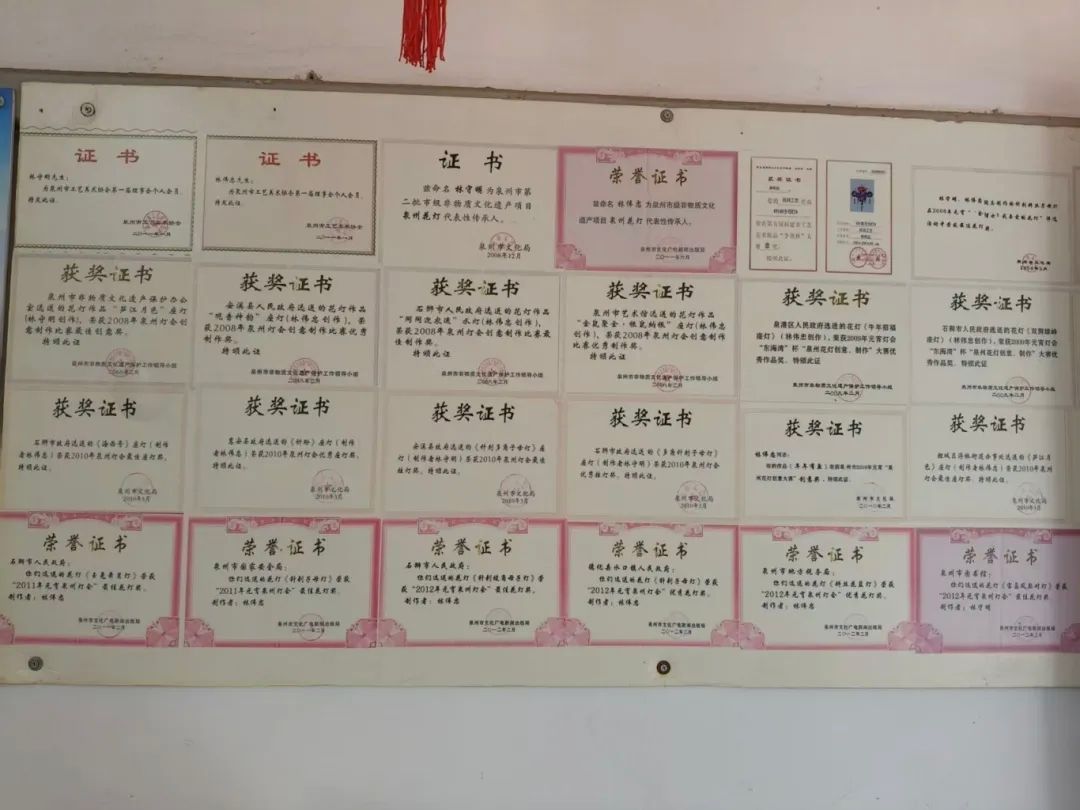 证书
林守明先生：
为泉州市工艺美术协会第一届理事会个人会员，
特发此证。
泉州市工艺美术协会
二〇一一年一月
证书
林伟忠先生：
为泉州市工艺美术协会第一届理事会个人会员，
特发此证。
泉州市工艺美术协会
二〇一一年一月
证书
兹命名 林守明 为泉州市第
二批市级非物质文化遗产项目
泉州花灯 代表性传承人。
泉州市文化局
2008年12月
荣誉证书
兹命名 林伟忠 为泉州市级非物质文化
遗产项目 泉州花灯 代表性传承人。
泉州市文化广电新闻出版局
二〇一一年六月
获奖证书
获奖证书
泉州市非物质文化遗产保护办公
室选送的花灯作品“芦江月色”座灯
(林守明创作)，荣获2008年泉州灯会创
意制作比赛最佳创意奖。
特颁此证
泉州市非物质文化遗产保护工作领导小组
二〇〇八年二月
获奖证书
安溪县人民政府选送的花灯作品
座灯(林伟忠创作)，荣
获2008年泉州灯会创意制作比赛优秀
制作奖。
特颁此证
泉州市非物质文化遗产保护工作领导小组
二〇〇八年二月
获奖证书
石狮市人民政府选送的花灯作品
水灯(林伟忠创作)，
荣获2008年泉州灯会创意制作比赛最
佳制作奖。
特颁此证
泉州市非物质文化遗产保护工作领导小组
二〇〇八年二月
获奖证书
泉州市艺术馆选送的花灯作品
“金鼠聚金·银鼠纳银”座灯(林伟忠
创作)，荣获2008年泉州灯会创意制作
比赛优秀制作奖。
特颁此证
泉州市非物质文化遗产保护工作领导小组
二〇〇八年二月
获奖证书
泉港区人民政府选送的花灯《牛年招福
座灯》（林伟忠创作），荣获2009年元宵灯会
“东海湾”杯“泉州花灯创意、制作”大赛优
秀作品奖。特颁此证
泉州市非物质文化遗产保护工作领导小组
二〇〇九年二月
获奖证书
石狮市人民政府选送的花灯《双狮雄峰
座灯》（林伟忠创作），荣获2009年元宵灯会
“东海湾”杯“泉州花灯创意、制作”大赛优
秀作品奖。特颁此证
泉州市非物质文化遗产保护工作领导小组
二〇〇九年二月
获奖证书
石狮市政府选送的《海西号》座灯（制作
者林伟忠）荣获2010年泉州灯会最佳座灯奖。
特颁此证。
泉州市文化局
2010年3月
获奖证书
惠安县政府选送的《针盼》座灯（制作
者林伟忠）荣获2010年泉州灯会优秀座灯奖。
特颁此证。
泉州市文化局
2010年3月
获奖证书
安溪县政府选送的《针刺多角子母灯》
座灯（制作者林守明）荣获2010年泉州灯会最佳
挂灯奖。特颁此证。
泉州市文化局
2010年3月
获奖证书
石狮市政府选送的《多角针刺子母灯》
座灯（制作者林守明）荣获2010年泉州灯会
优秀挂灯奖。特颁此证。
泉州市文化局
2010年3月
获奖证书
林伟忠同志：
创意奖，特颁此证。
泉州市文化局
二〇一〇年二月
获奖证书
选送的《芦江月
色》座灯（制作者林伟忠）荣获2010年泉州灯
会最佳座灯奖。特颁此证。
泉州市文化局
2010年3月
荣誉证书
石狮市人民政府：
荣获
“2011年元宵泉州灯会”最佳花灯奖。
制作者：林伟忠
泉州市文化广电新闻出版局
二〇一一年二月
荣誉证书
泉州市国家安全局：
你们选送的花灯《针刺子母灯》荣获
“2011年元宵泉州灯会”最佳花灯奖。
制作者：林伟忠
泉州市文化广电新闻出版局
二〇一一年二月
荣誉证书
石狮市人民政府：
荣获
“2012年元宵泉州灯会”最佳花灯奖。
制作者：林伟忠
泉州市文化广电新闻出版局
二〇一二年二月
荣誉证书
德化县水口镇人民政府：
你们选送的花灯《针刺子母灯》荣获
“2012年元宵泉州灯会”优秀花灯奖。
制作者：林伟忠
泉州市文化广电新闻出版局
二〇一二年二月
荣誉证书
泉州市地方税务局：
荣获
“2012年元宵泉州灯会”优秀花灯奖。
制作者：林伟忠
泉州市文化广电新闻出版局
二〇一二年二月
荣誉证书
泉州市图书馆：
荣获
“2012年元宵泉州灯会”最佳花灯奖。
制作者：林守明
泉州市文化广电新闻出版局
二〇一二年二月